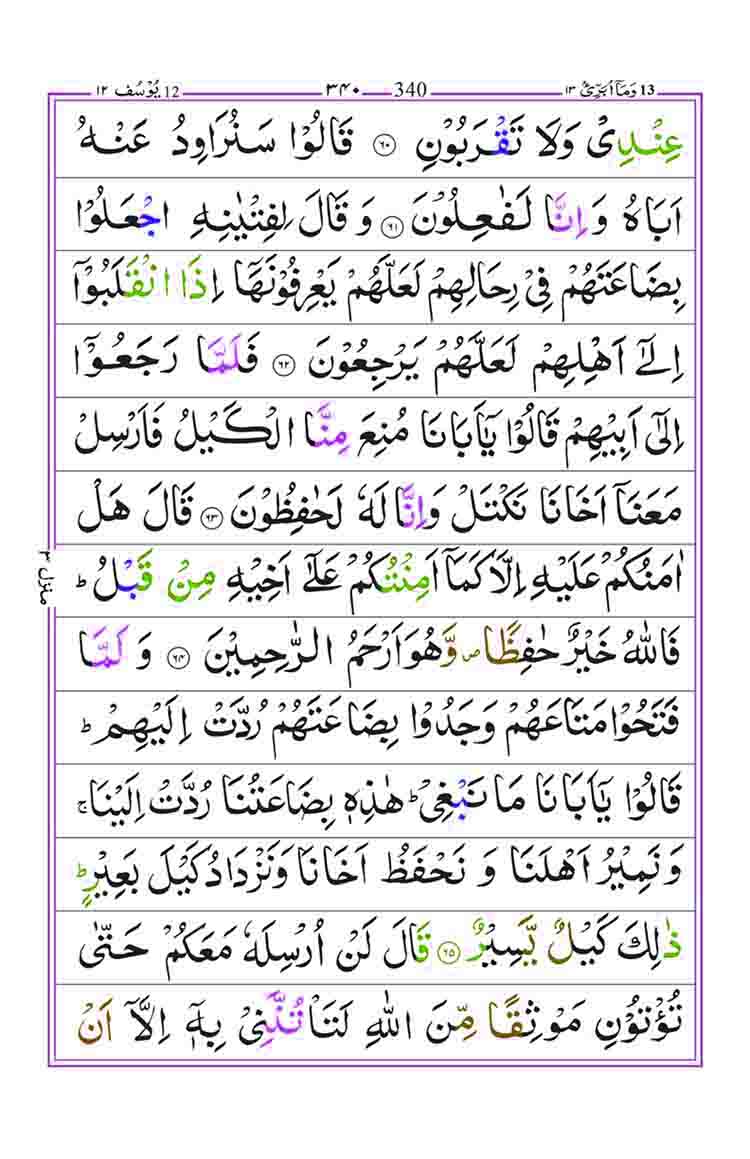 13 وَمَآ اُبَرِّئُ ١٣ 340 ٣٤٠ 12 یُوْسُف ١٢
عِنْدِیْ وَلَا تَقْرَبُوْنِ ۝٦٠ قَالُوْا سَنُرَاوِدُ عَنْهُ
اَبَاهُ وَ اِنَّا لَفٰعِلُوْنَ ۝٦١ وَ قَالَ لِفِتْیٰنِهِ اجْعَلُوْا
بِضَاعَتَهُمْ فِیْ رِحَالِهِمْ لَعَلَّهُمْ یَعْرِفُوْنَهَاۤ اِذَا انْقَلَبُوْۤا
اِلٰۤی اَهْلِهِمْ لَعَلَّهُمْ یَرْجِعُوْنَ ۝٦٢ فَلَمَّا رَجَعُوْۤا
اِلٰۤی اَبِیْهِمْ قَالُوْا یٰۤاَبَانَا مُنِعَ مِنَّا الْكَیْلُ فَاَرْسِلْ
مَعَنَاۤ اَخَانَا نَكْتَلْ وَاِنَّا لَهٗ لَحٰفِظُوْنَ ۝٦٣ قَالَ هَلْ
اٰمَنُكُمْ عَلَیْهِ اِلَّا كَمَاۤ اَمِنْتُكُمْ عَلٰۤی اَخِیْهِ مِنْ قَبْلُ ؕ
فَاللّٰهُ خَیْرٌ حٰفِظًا ۪ وَّهُوَ اَرْحَمُ الرّٰحِمِیْنَ ۝٦٤ وَ لَمَّا
فَتَحُوْا مَتَاعَهُمْ وَجَدُوْا بِضَاعَتَهُمْ رُدَّتْ اِلَیْهِمْ ؕ
قَالُوْا یٰۤاَبَانَا مَا نَبْغِیْ ؕ هٰذِهٖ بِضَاعَتُنَا رُدَّتْ اِلَیْنَا ۚ
وَنَمِیْرُ اَهْلَنَا وَ نَحْفَظُ اَخَانَا وَنَزْدَادُ كَیْلَ بَعِیْرٍ ؕ
ذٰلِكَ كَیْلٌ یَّسِیْرٌ ۝٦٥ قَالَ لَنْ اُرْسِلَهٗ مَعَكُمْ حَتّٰی
تُؤْتُوْنِ مَوْثِقًا مِّنَ اللّٰهِ لَتَاْتُنَّنِیْ بِهٖۤ اِلَّاۤ اَنْ
منزل ٣